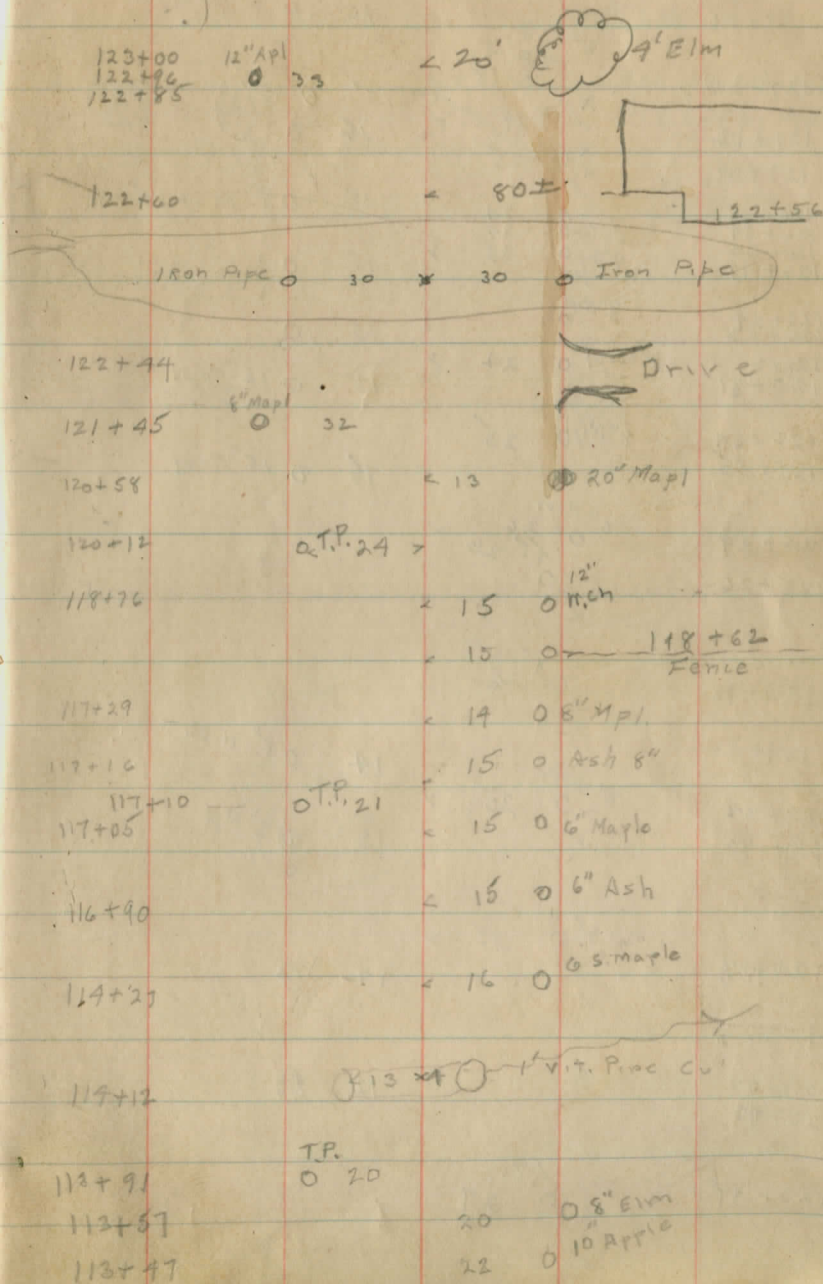 123+00 12" Apl < 20' 4' Elm
122+96 33
122+85
122+60 < 80± 122+56
Iron Pipe 30 x 30 Iron Pipe
122+44 Drive
8" Mapl
121+45 32
120+58 < 13 20" Mapl
120+12 T.P. 24 >
12"
118+76 < 15 H.ch
< 15 118+62
Fence
117+29 < 14 8" Mpl.
117+16 15 Ash 8"
117+10 T.P. 21
117+05 < 15 6" Maple
116+90 < 15 6" Ash
6 s. maple
114+23 < 16
114+12 < 13 x 4 1' V.T. Pipe Cu
T.P.
113+91 20
113+57 20 8" Elm
113+47 22 10" Apple